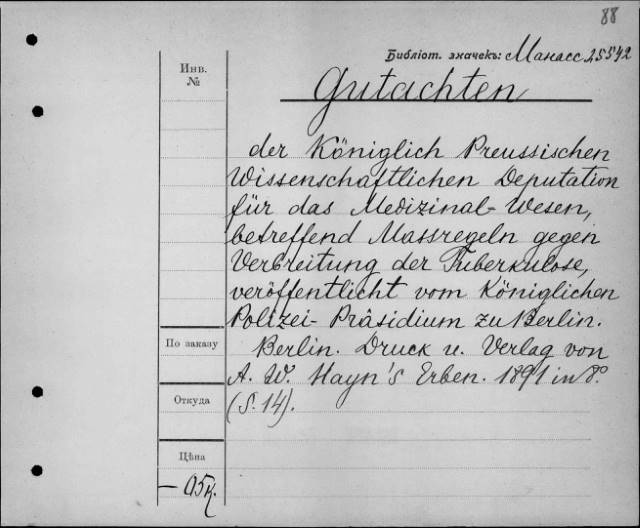 88
Библіот. значекъ: Манасс 25542
Инв.
№
Gutachten
der Königlich Preussischen
Wissenschaftlichen Deputation
für das Medizinal-Wesen,
betreffend Massregeln gegen
Verbreitung der Tuberkulose,
veröffentlicht vom Königlichen
Polizei-Präsidium zu Berlin.
По заказу
Berlin. Druck u. Verlag von
A. W. Hayn's Erben. 1891 in 8º.
Откуда
(S. 14).
Цѣна
— 05 к.